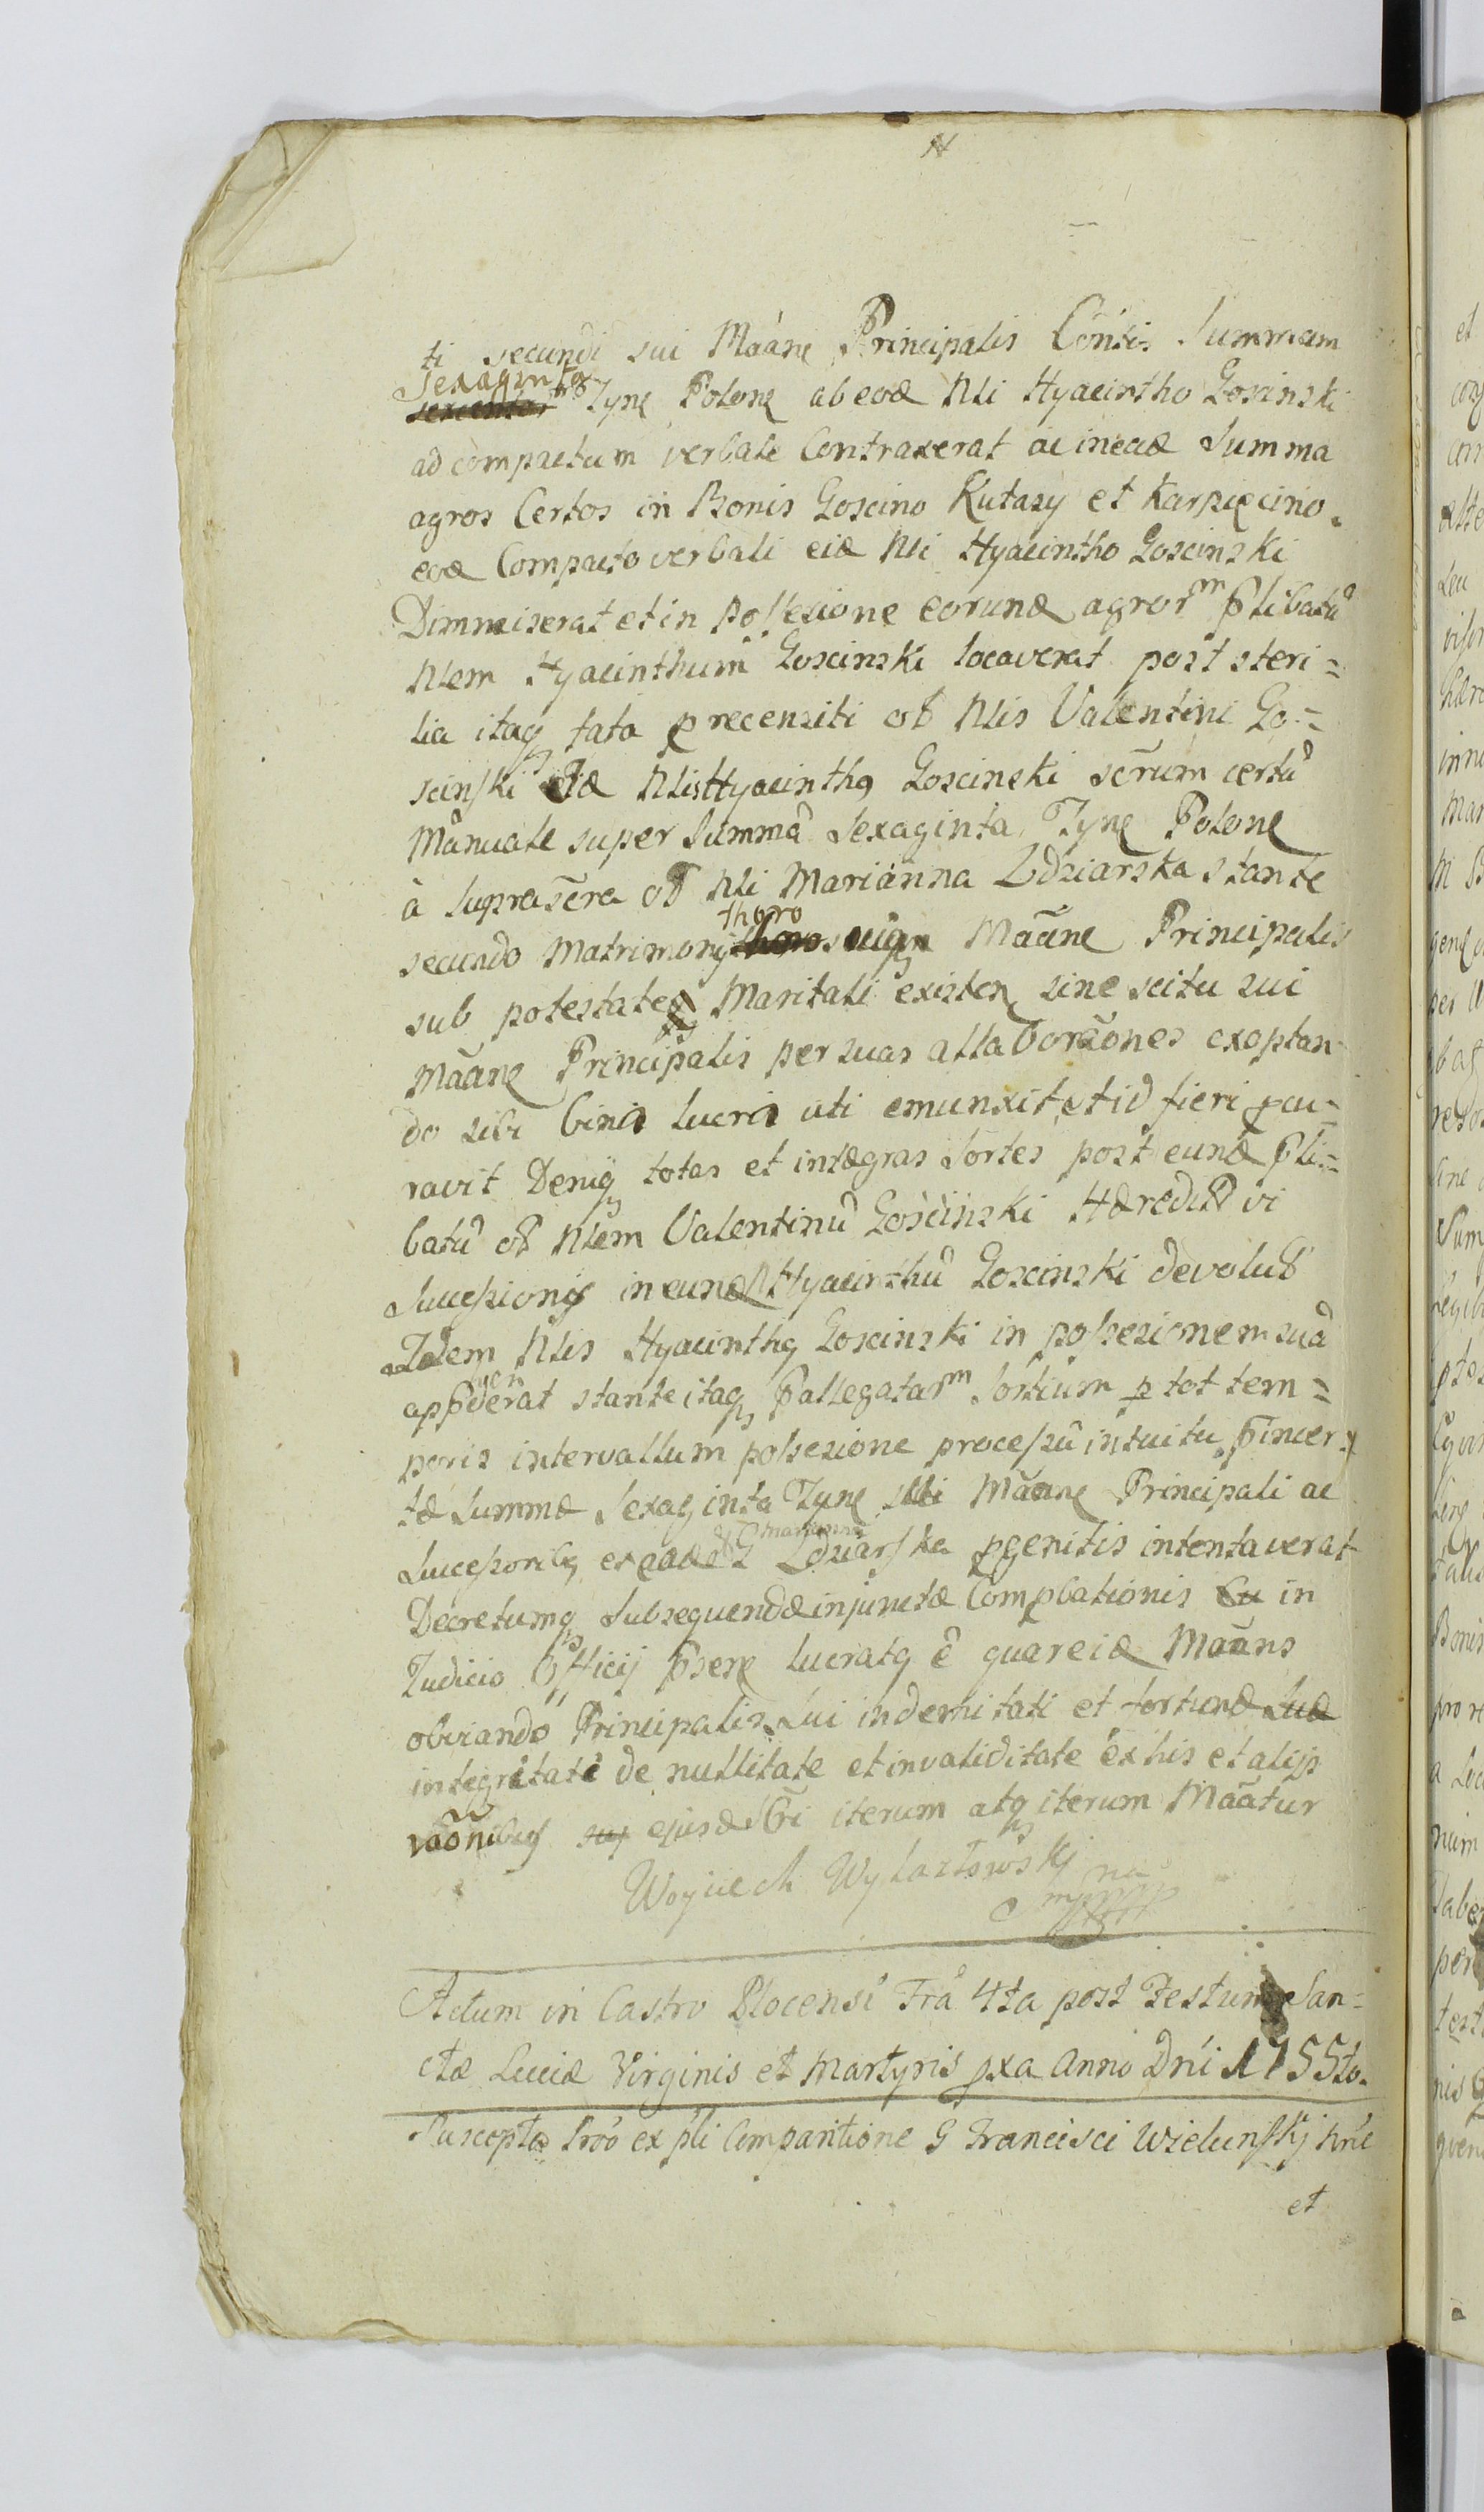 ti secundi sui Maane Principalis Contis Summam
Sexaginta
sexcentor Tyne Polone ab eod Nli Hyacintho Goscinski
ad compactum verbale Contraxerat ac in ead Summa
agros Certos in Bonis Goscino Kutasy et Karpięcino
eod Compacto verbali eid Nli Hyacintho Goscinski
Dimmiserat et in possesione eorund agrorm plibatu
Nlem Hyacinthum Goscinski locaverat post steri=
lia itaq fata precensiti ol Nlis Valentini Go=
scinski Id Nlis Hyacinthq Goscinski scrum certu
Manuale super Summa Sexaginta Tyne Polone
à suprascra ol Nli Marianna Ldziarska stante
thoro
secundo Matrimonij thoro suiqn Maane Principalis
sub potestateq Maritali existen sine scitu sui
Maane Principalis per suas allaboraones exoptan
do sibi binis lucris uti emunxit et id fieri pcu=
ravit Deniq totas et intægras Sortes post eund Pli=
batu ol Nlem Valentinu Goscinski Hæredit vi
Successionis in eund N Hyacinthu Goscinski devolut
Idem Nlis Hyacinthq Goscinski in possesionem sua
apphderat stante itaq Pallegatarm Sortium p tot tem=
poris intervallum possesione processu intuitu pincer
tæ Summæ Sexaginta Tyne Maane Principali ac
Marianna
Successoribq ex ead Ldziarska pgenitis intentaverat
Decretumq Subsequendæ injunctæ Compbationis in
Judicio Officij psere lucratq e quare id Maans
obviando Principalis Sui indemitati et fortunæ Suæ
integritati de nullitate et invaliditate ex his et alijs
raonibus suy ejusd Sri iterum atq iterum Maatur
Woyciech Wylazłowskj
Actum in Castro Plocensi Fra 4ta post Festum San=
ctæ Luciæ Virginis et Martyris pxa Anno Dni 1755to.
Suscepta Pro ex pli Comparitione G Francisci Wzielunskj
et